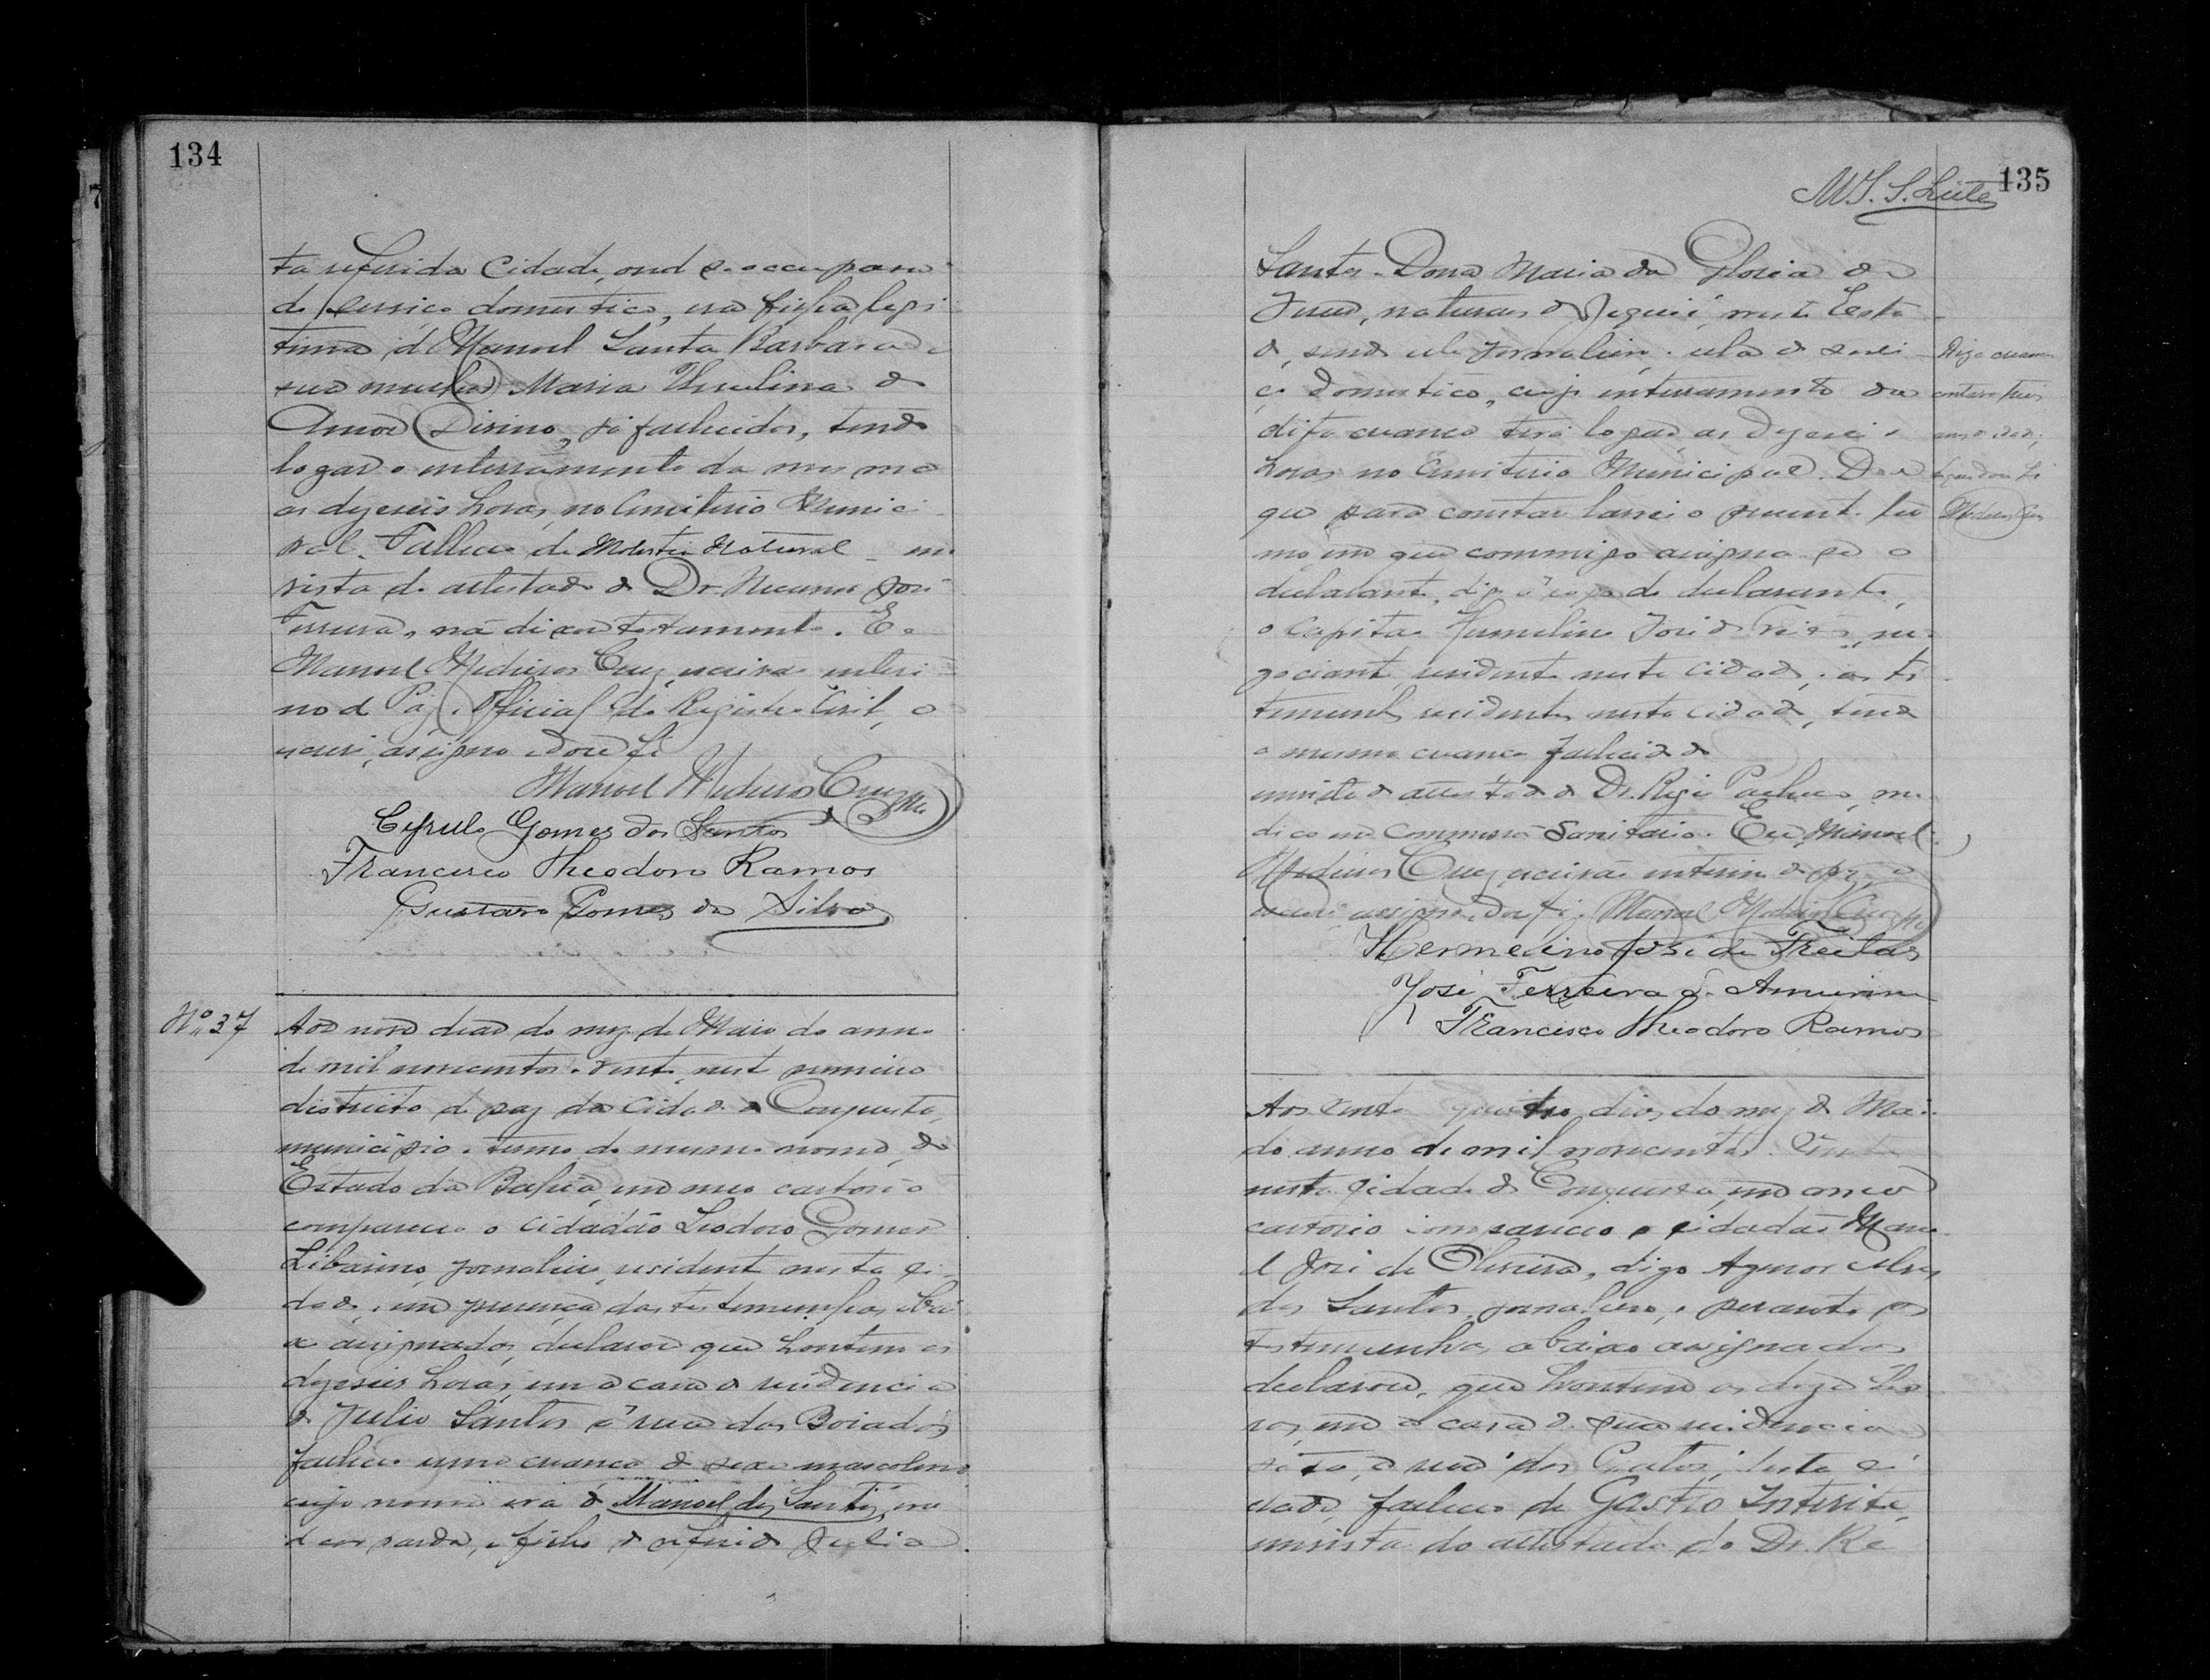 134
ta referida Cidade, onde se occupava
do serviço domestico, era filha legi
tima d Manoel Santa Barbara de
sua mulher Maria Thurelina do
Amor Divino, já fallecidos, tendo
logar o enterramento da mesma
as dezeseis horas, no Cemiterio Munici
pal. Falleceu de Molestia Natural em
vista do attestado do Dr. José
Ferreira, não deixou testamento. Eu
Manoel Medeiros Cruz, escrivão interi
no d Paz, Official do Registro Civil, o
escrevi, assigno e dou fé
Manoel Medeiros Cruz
Gomes dos Santos
Francisco Theodoro Ramos
Gustavo Gomes da Silva
Nº 37
Aos nove dias do mez de Maio do anno
de mil novecentos e vinte, nest primeiro
districto de paz da Cidade d Conquista,
municipio e termo do mesmo nome, do
Estado da Bahia, em meu cartorio
compareceu o cidadão Leodoro Gomes
Libarino, jornaleiro, resident nesta ci
dade, em presença das testemunhas abai
xo assignados, declarou que hontem as
dezeseis horas, em a casa d residencia
d Julio Santos á rua dos Boiados
falleceu uma creança d sexo masculino
cujo nome era d Manoel dos Santos,
d cor parda, e filho d referido Julio
135
M S. S. Leite
Santos Dona Maria da Gloria de
Jesus, naturaes d Jequié, neste Esta
do, sendo elle jornaleiro e ella d servi
ço domestico, cujo enterramento da
dita creança terá logar as dezeseis
horas no Cemiterio Municipal. Do
que para constar lavrei o presente ter
mo em que commigo assigna-se o
declarante, digo rogo do declarante,
o Capitão Hermelino José d Freitas, ne
gociante, residente nesta cidade, e as tes
temunhas residentes nesta cidade, tendo
o mesmo creança fallecido de
em vista d attestado d Dr. Regis Pacheco, me
dico em Commissão Sanitaria. Eu Manoel
Medeiros Cruz, escrivão interino de paz, o
escrevi, assigno e dou fé. Manoel Medeiros Cruz
Hermelino José de Freitas
José Ferreira d. Amurim
Francisco Theodoro Ramos
Digo creança
Medeiros Cruz
Aos vinte quatro dias do mez d Maio
do anno de mil novecentos e vinte
nesta cidade d Conquista, em o meu
cartorio compareceu o cidadão Mano
el José de Oliveira, digo Agenor Alves
dos Santos, jornaleiro, e perante os
testemunhas abaixo assignados
declarou, que hontem as doze ho
ras, em a casa d. sua residencia
sita, a rua dos desta ci
dade, falleceu de Gastro Interite,
em vista do attestado do Dr. Re